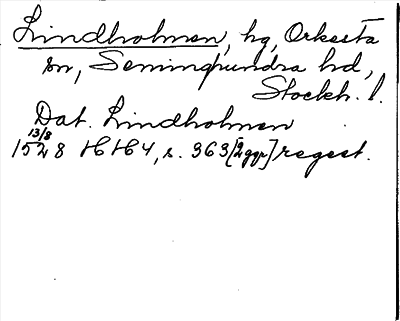 Lindholmen, hg, Orkesta
sn, Seminghundra hd,
Stockh. l.
Dat. Lindholmen
13/8
1528 HH4, s. 363 [2ggr] regest.